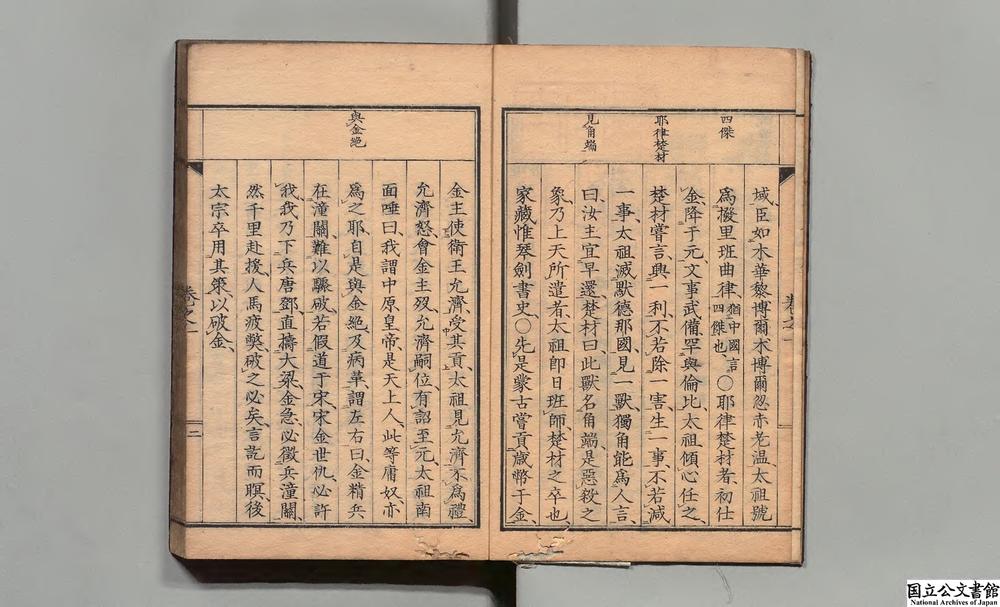 四傑
耶律楚材
見角端
域、臣如木華黎、博爾木、博爾忽、赤老温、太祖號
爲撥里班曲律、猶中國言四傑也、〇耶律楚材者、初仕
金、降于元、文事武備、罕與倫比、太祖傾心任之、
楚材嘗言、興一利、不若除一害、生一事、不若減
一事、太祖滅默德那國、見一獸、獨角能爲人言、
曰、汝主宜早還、楚材曰、此獸名角端、是惡殺之
象、乃上天所遣者、太祖即日班師、楚材之卒也、
家藏惟琴劍書史、〇先是蒙古嘗貢歲幣于金、
卷之一
與金絕
金主使衛王允濟、受其貢、太祖見允濟、不爲禮、
允濟怒、會金主歿、允濟嗣位、有詔至元、太祖南
面唾曰、我謂中原皇帝、是天上人、此等庸奴、亦
爲之耶、自是與金絕、及病革、謂左右曰、金精兵
在潼關、難以驟破、若假道于宋、宋金世仇、必許
我、我乃下兵唐鄧、直擣大梁、金急、必徵兵潼關、
然千里赴援、人馬疲獘、破之必矣、言訖而暝、後
太宗卒用其策、以破金、
卷之一
二
国立公文書館
National Archives of Japan